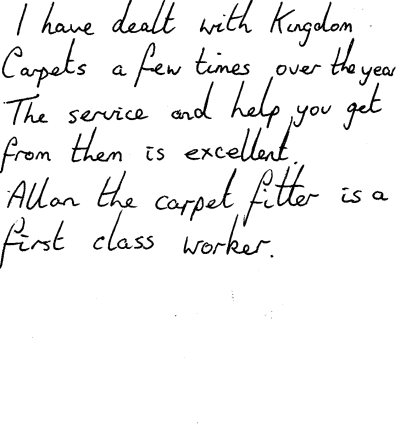 I have dealt with Kingdom
Carpets a few times over the year
The service and help you get
from them is excellent.
Allan the carpet fitter is a
first class worker.